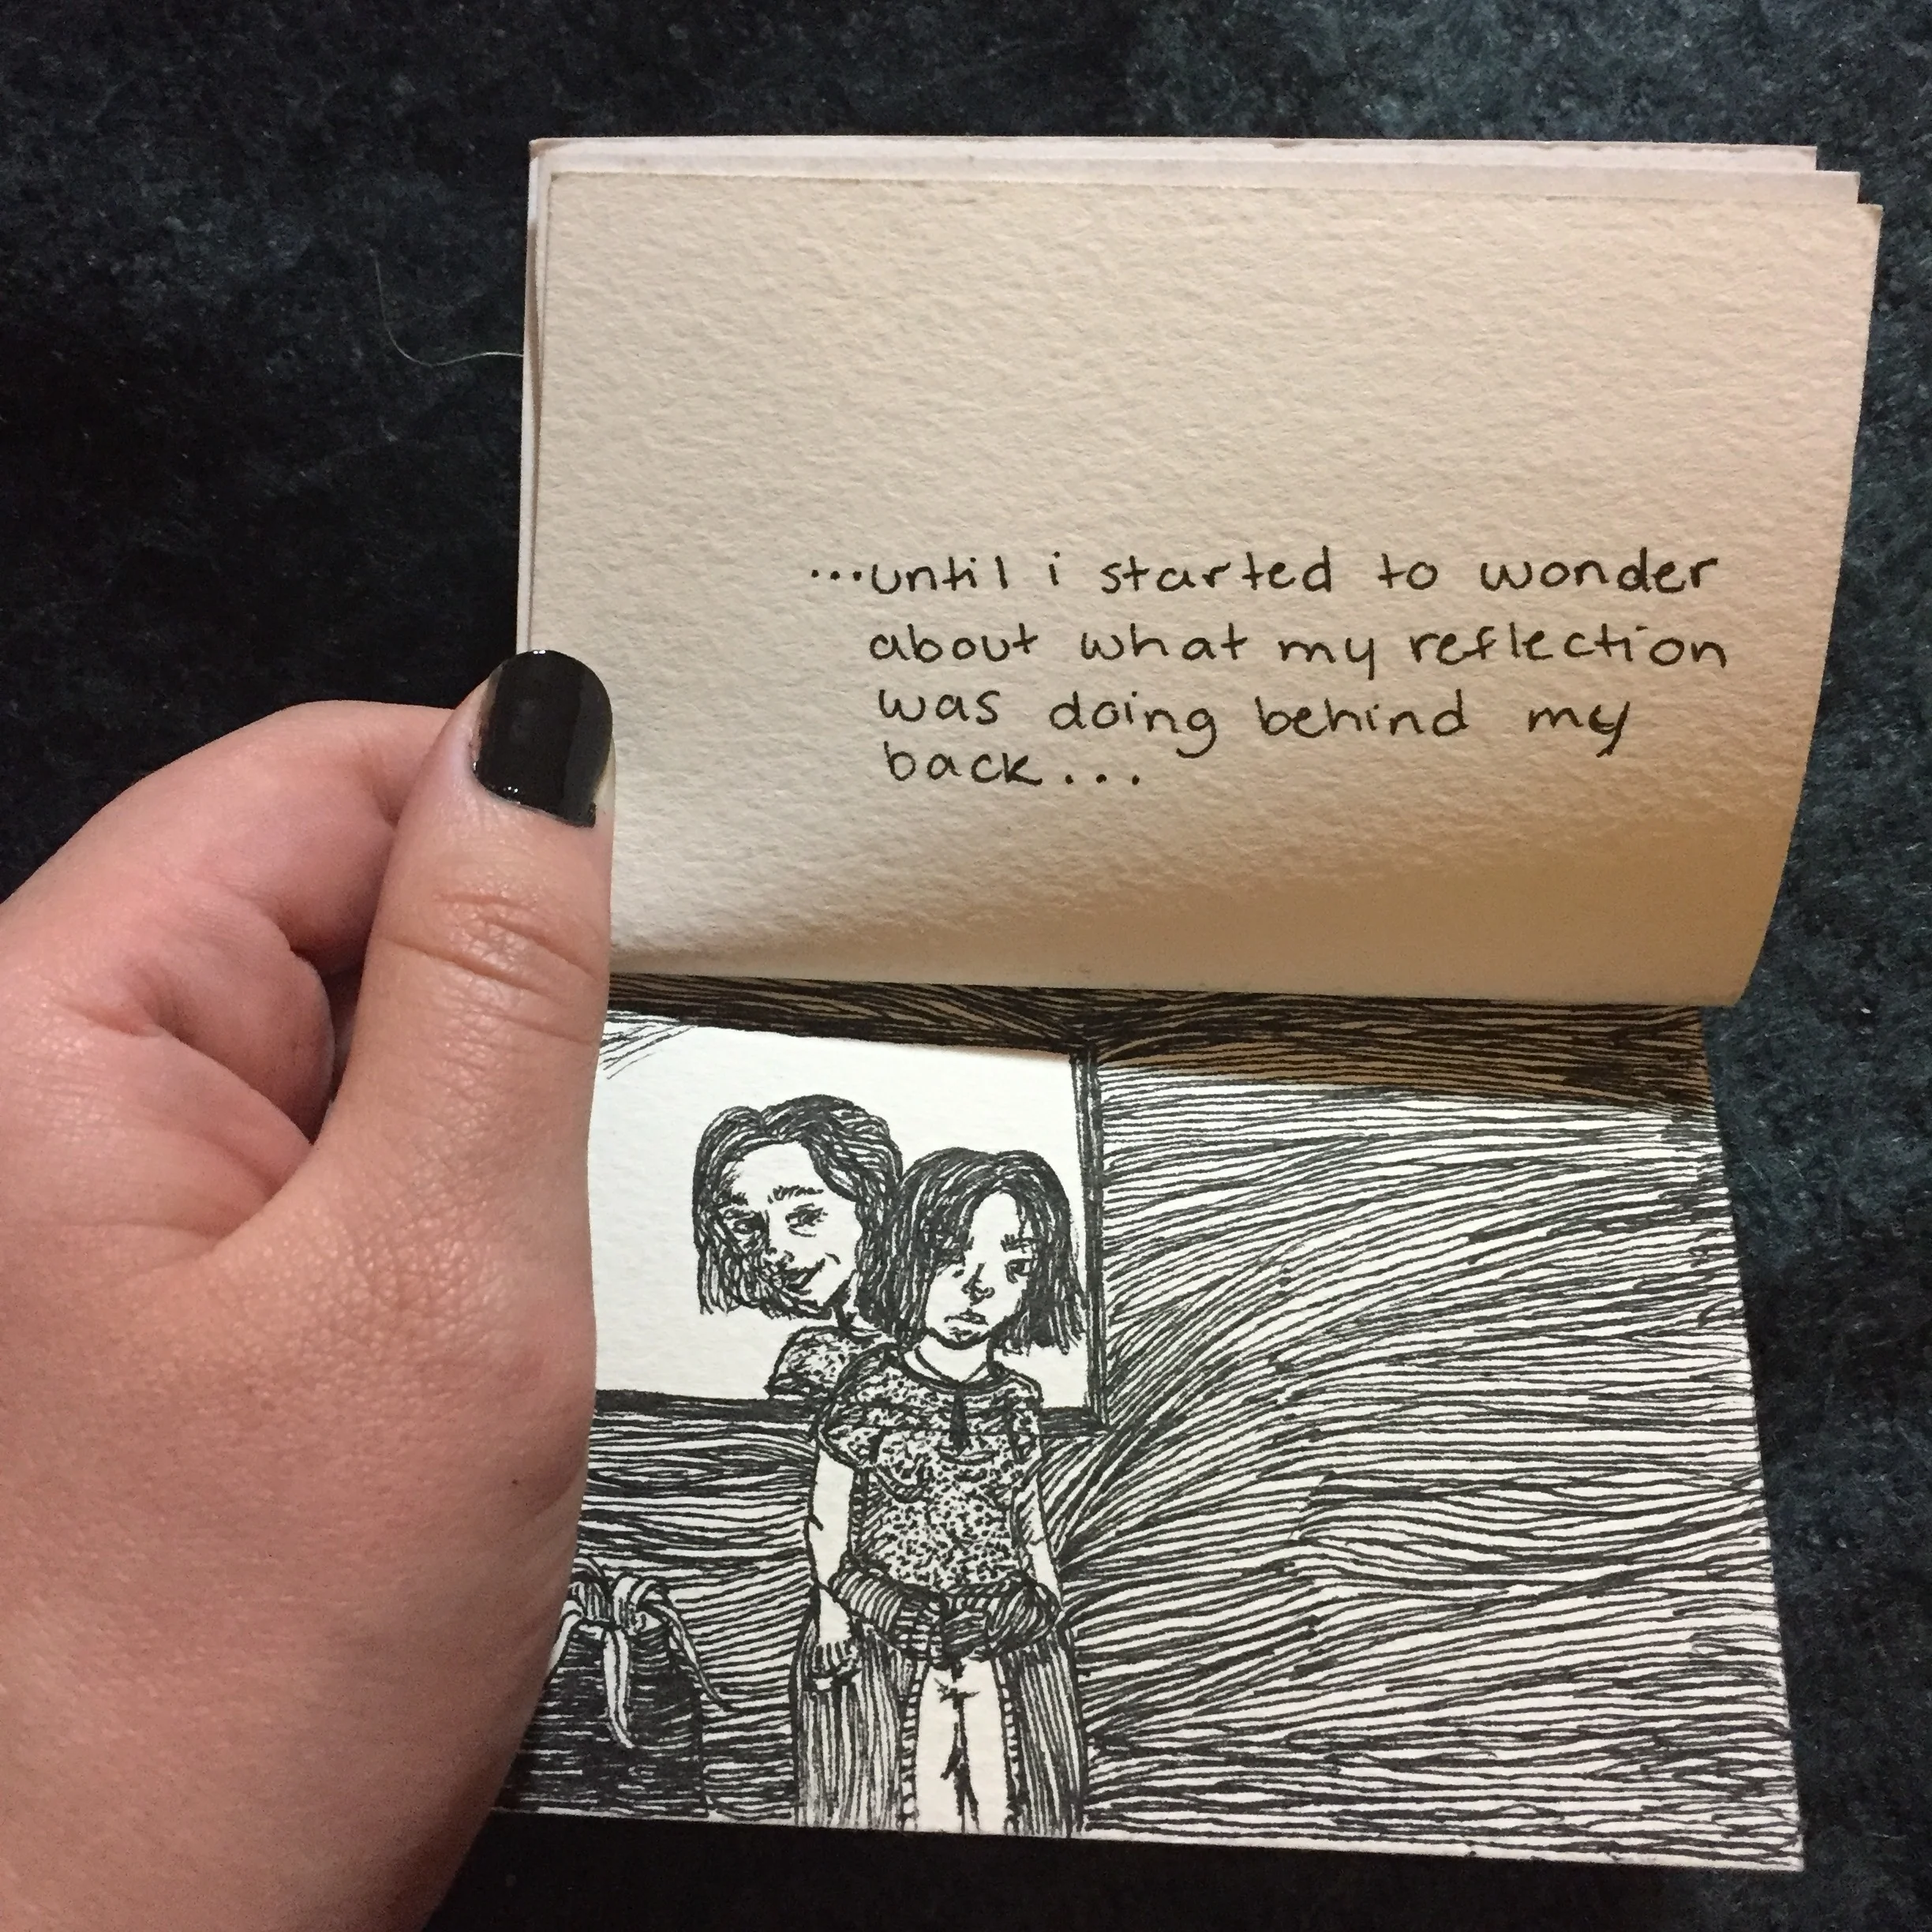 ...until i started to wonder
about what my reflection
was doing behind my
back...